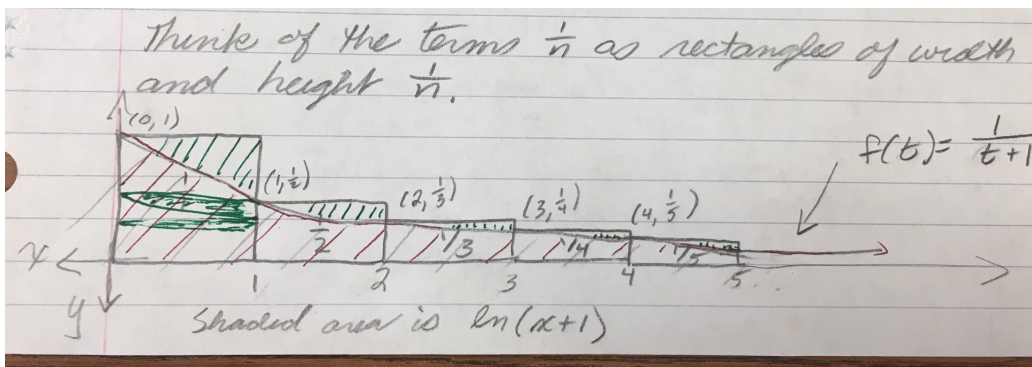 Think of the terms 1/n as rectangles of width
and height 1/n.
(0,1)
f(t) = 1/(t+1)
(1,1/2) (2,1/3) (3,1/4) (4,1/5)
1 1/2 1/3 1/4 1/5
x
1 2 3 4 5...
y
Shaded area is ln(x+1)